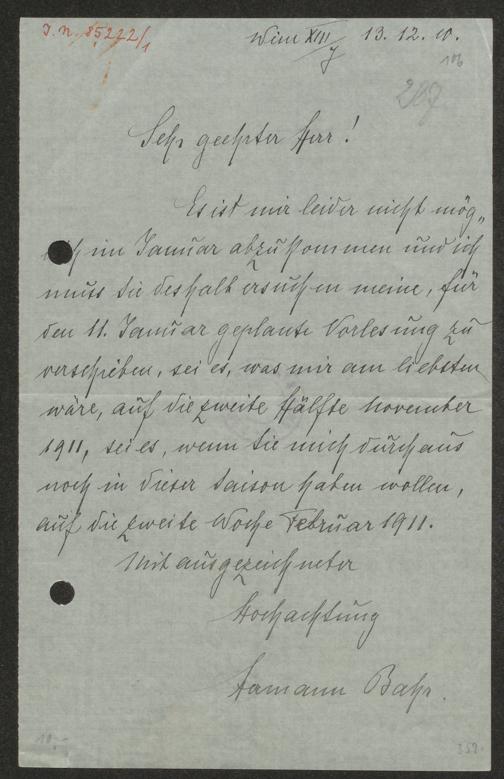 J.N. 85222/1
Wien XIII/7 13. 12. 10.
106
207
Sehr geehrter Herr!
Es ist mir leider nicht mög„
lich im Januar abzukommen und ich
muss Sie deshalb ersuchen meine, für
den 11. Januar geplante Vorlesung zu
verschieben, sei es, was mir am liebsten
wäre, auf die zweite Hälfte November
1911, sei es, wenn Sie mich durchaus
noch in dieser Saison haben wollen,
auf die zweite Woche Februar 1911.
Mit ausgezeichneter
Hochachtung
Hermann Bahr.
10.-
352.